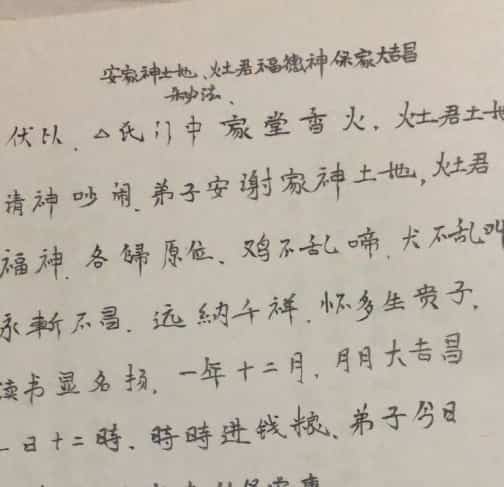 安家神土地、灶君福德神保家大吉昌
秘法、
伏以、△氏门中家堂香火、灶君土地
请神吵闹、弟子安谢家神土地、灶君
福神、各歸原位、鸡不乱啼、犬不乱叫
永斬不昌、远納千祥、怀多生贵子、
读书显名扬、一年十二月、月月大吉昌
一日十二時、時時进钱粮、弟子今日